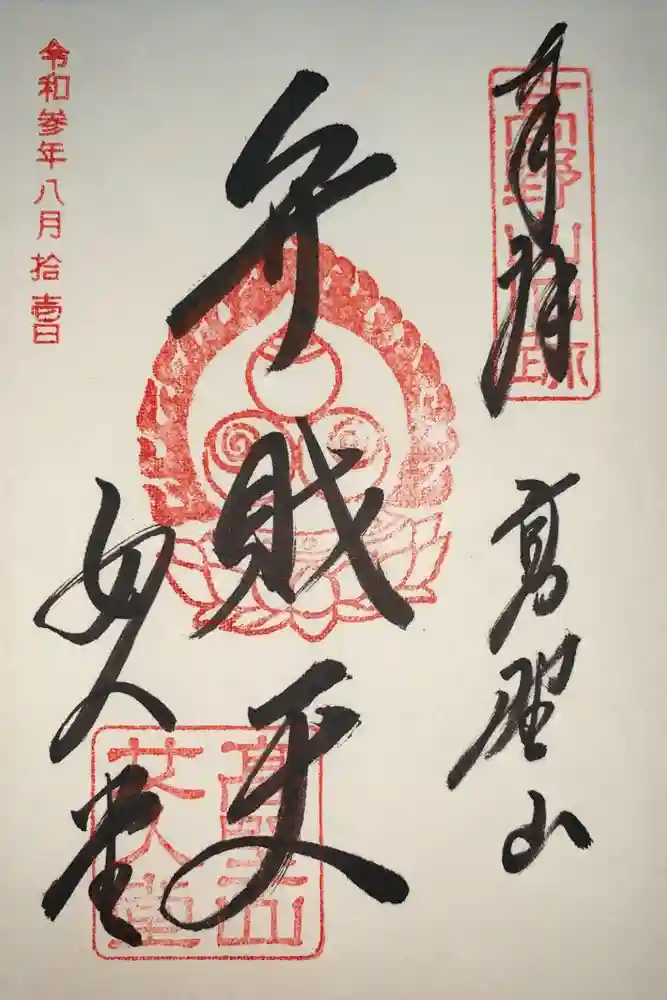 奉拝
高野山
弁財天
女人堂
令和参年八月拾壱日
高野山
女人堂